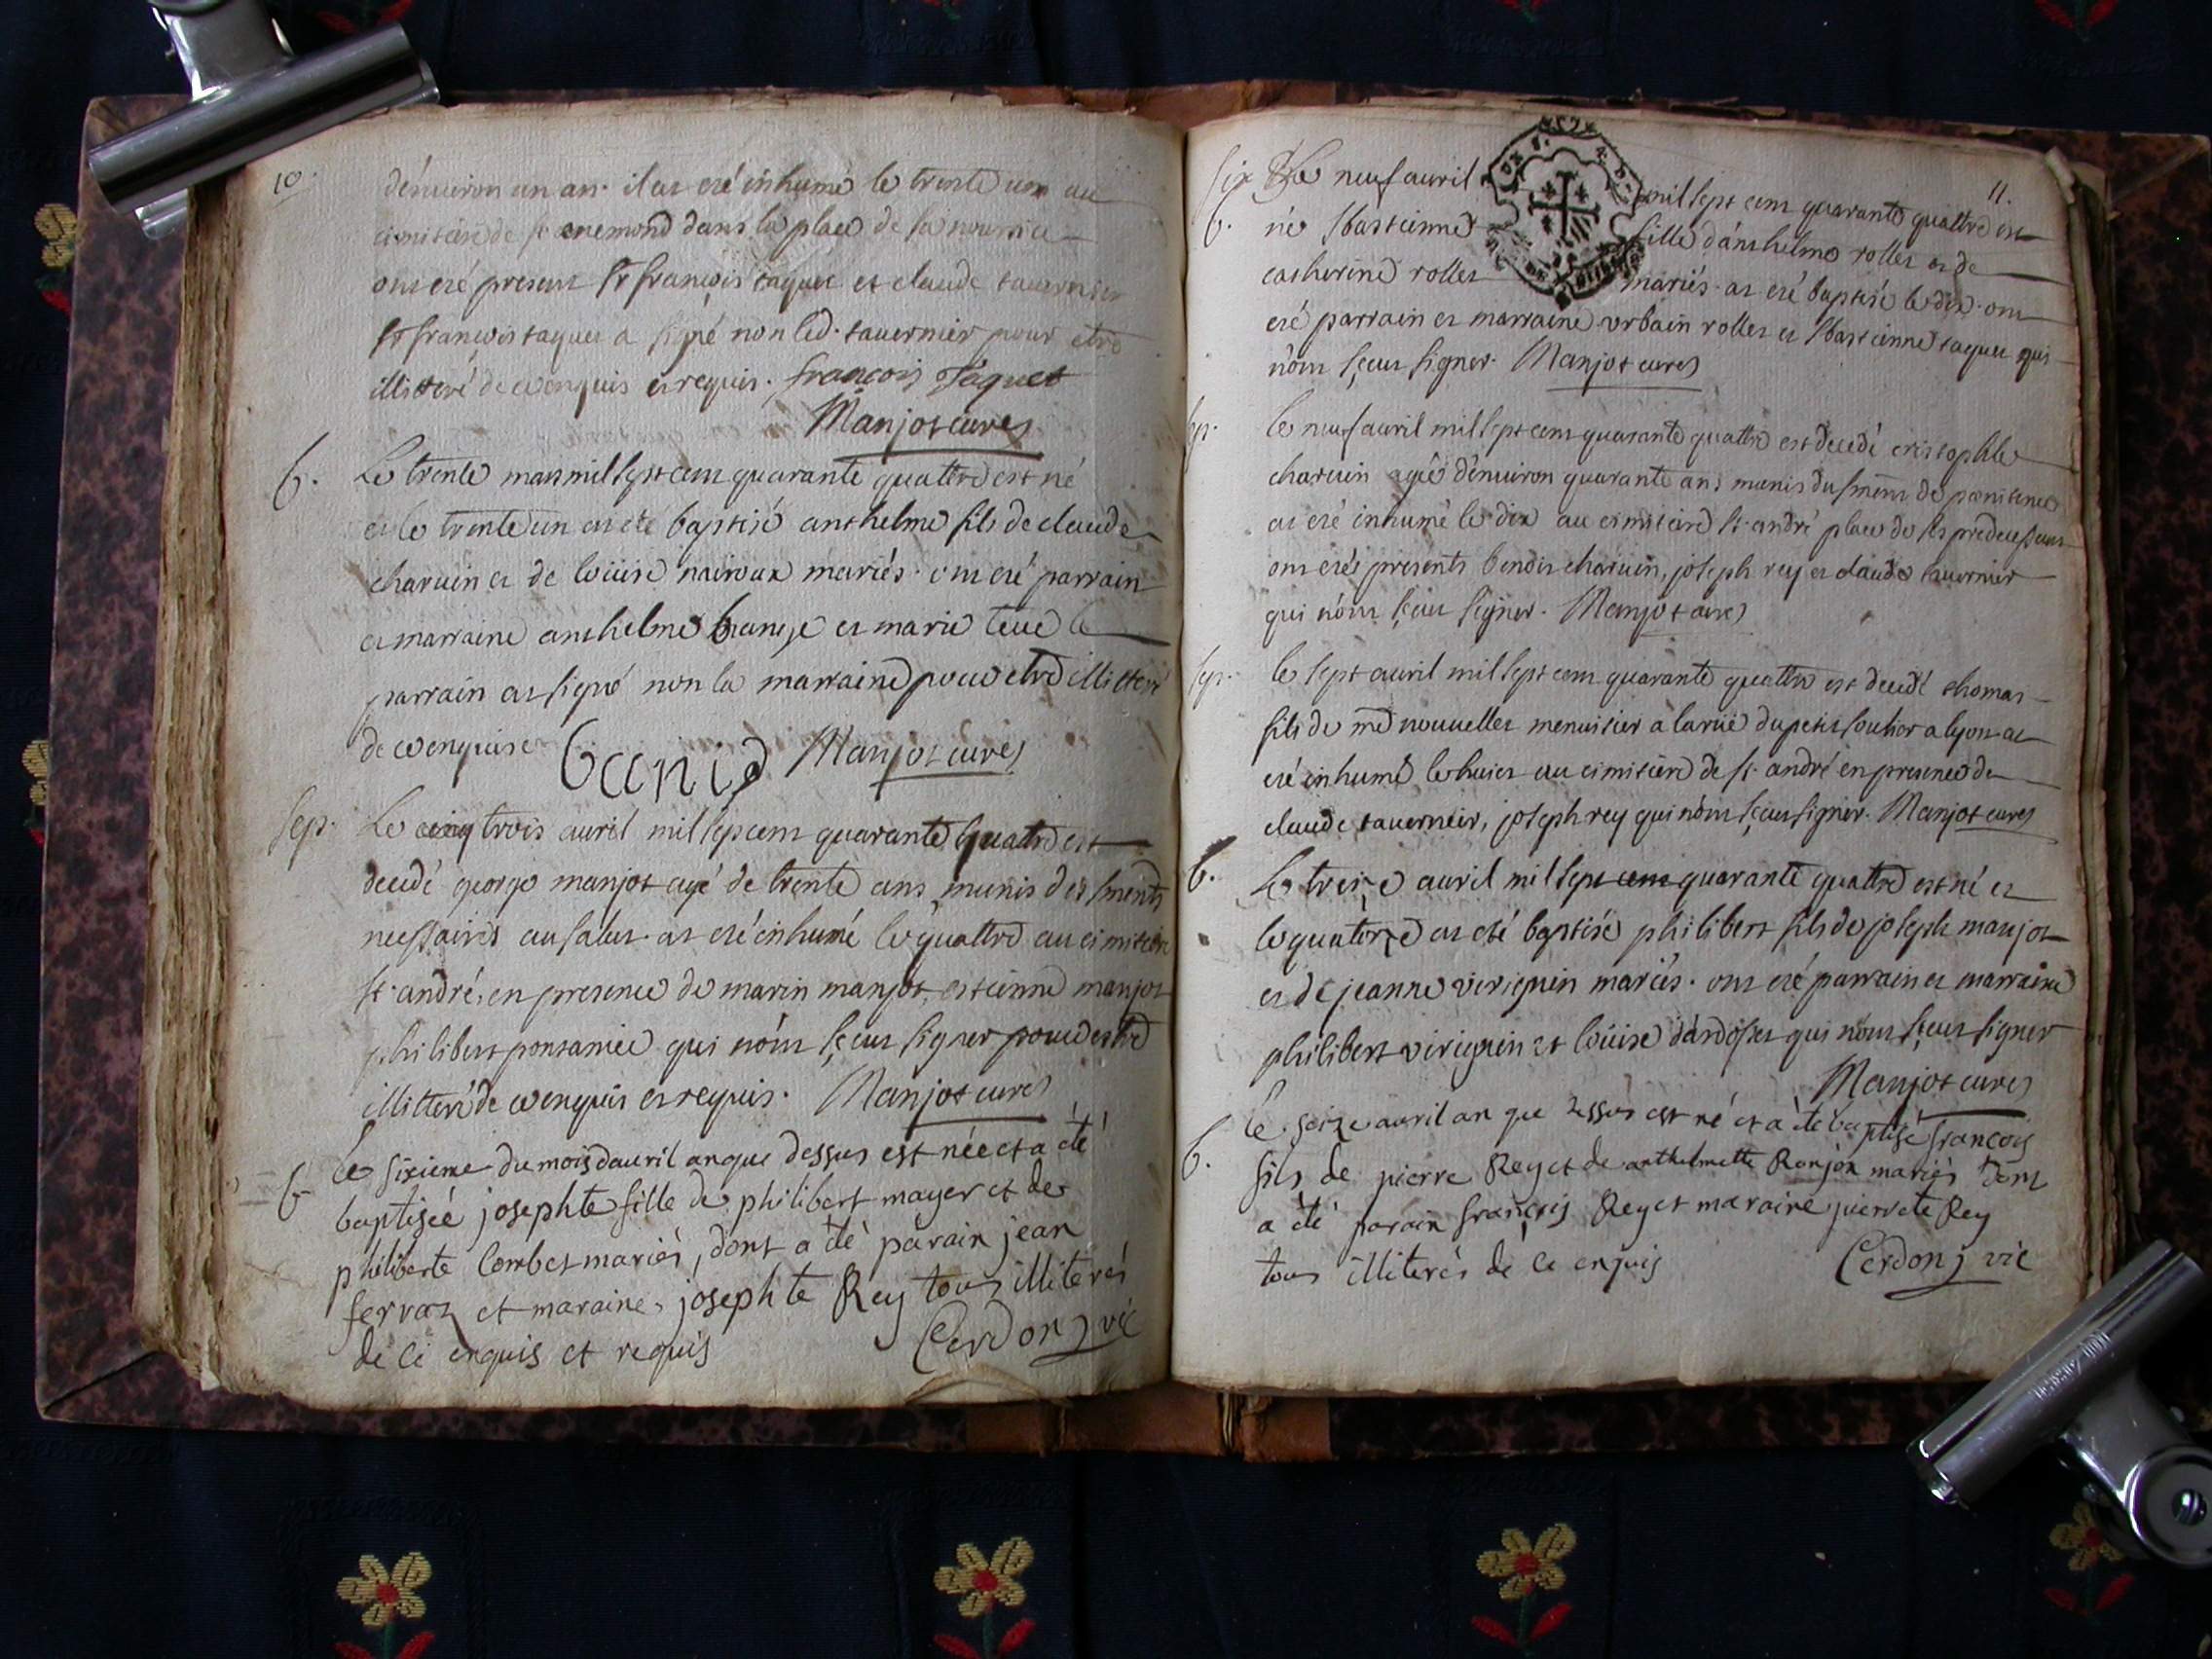 10.
d'énuiron un an. il at eté inhumé le trente un au
cimitiere de st anemond dans la place de sa nourrice
ont eté present sr françois taquet et claude tauernier
sr françois taquet a signé non led. tauernier pour etre
illitteré de ce enquis et requis. françois Taquet
Manjot curé
b. Le trente mars mil sept cent quarante quattre est né
et le trente un at eté baptisé anthelme fils de claude
charuin et de loüise nairoux mariés. ont eté parrain
et marraine anthelme et marie le
parrain at signé non la marraine pour etre illitteré
de ce enquise Manjot curé
sep. Le cinq trois auril mil sept cent quarante quattre est
decedé george manjot agé de trente ans munis des sments
necessaires au salut. at eté inhumé le quattre au cimitiere
st. andré, en presence de marin manjot, estienne manjot
philibert qui n'ont sçeut signer pour estre
illitteré de ce enquis et requis. Manjot curé
b le sixieme du mois d'auril an que dessus est née et a été
baptisée josephte fille de philibert mayer et de
philiberte Combet mariés, dont a été parain jean
ferraz et maraine, josephte Rey tous illiterés
de ce enquis et requis Cerdon j vic
11.
six Le neuf auril mil sept cent quarante quattre est
b. né sbastienne fille d'anthelme rollet et de
catherine rollet mariés. at eté baptisé le dix. ont
eté parrain et marraine vrbain rollet et sbastienne taquet qui
n'ont sçeut signer. Manjot curé
sep. le neuf auril mil sept cent quarante quattre est decedé cristophle
charuin agé d'énuiron quarante ans munis du sment de pænitence
at eté inhumé le dix au cimitiere st. andré place de ses predecesseurs
ont etés presents benoit charuin, joseph rey et claude tauernier
qui n'ont sçeut signer. Manjot curé
sep. le sept auril mil sept cent quarante quattre est decedé thomas
fils de mre nouuellet menuisier a la rüe du petit soulier a lyon at
eté inhumé le huict au cimitiere de st. andré en presence de
claude tauernier, joseph rey qui n'ont sçeut signer. Manjot curé
b. Le treize auril mil sept cent quarante quattre est né et
le quatorze at eté baptisé philibert fils de joseph manjot
et de jeanne viriquin mariés. ont eté parrain et marraine
philibert viriquin et loüise qui n'ont sçeut signer
Manjot curé
le seize auril an que dessus est né et a été baptisé françois
b. fils de pierre Rey et de anthelmette Ronjon mariés dont
a été parain françois Rey et maraine pierrete Rey
tous illiterés de ce enquis Cerdon j vic